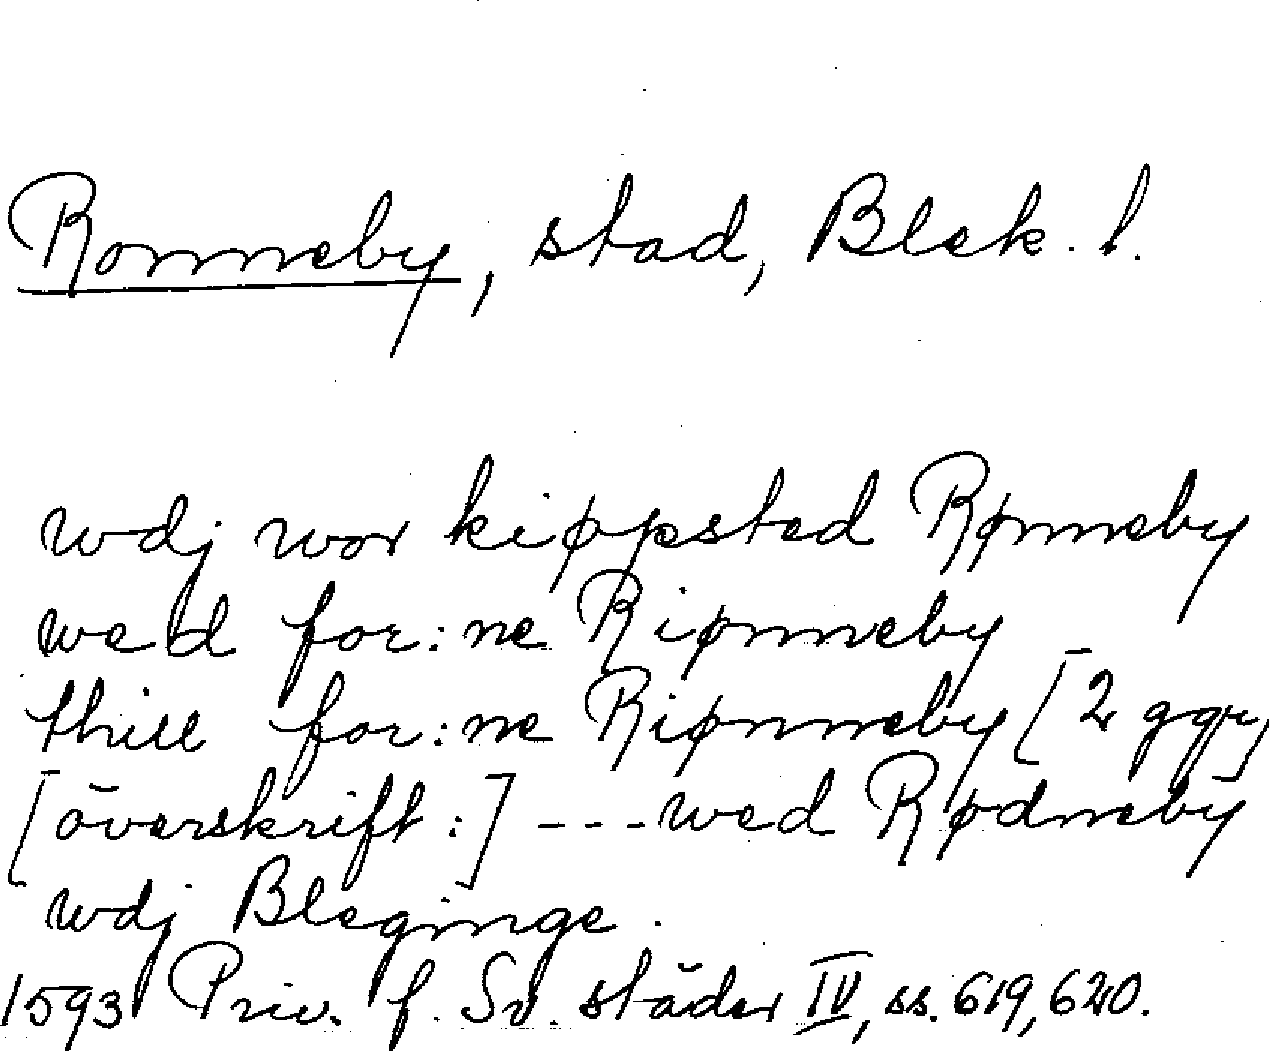 Ronneby, stad, Blek. l.
wdj wor kiøppsted Rønneby
wed for:ne Riønneby
thill for:ne Riønneby [2 ggr]
[överskrift:] --- wed Rødneby
wdj Bleginge.
1593 Priv. f. Sv. städer IV, ss. 619, 620.